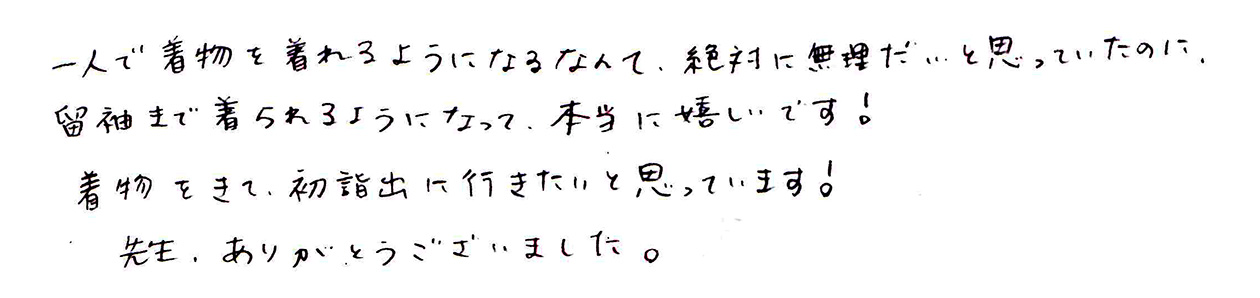 一人で着物を着れるようになるなんて、絶対に無理だいと思っていたのに、
留袖まで着られるようになって、本当に嬉しいです!
着物をきて、初詣出に行きたいと思っています!
先生、ありがとうございました。